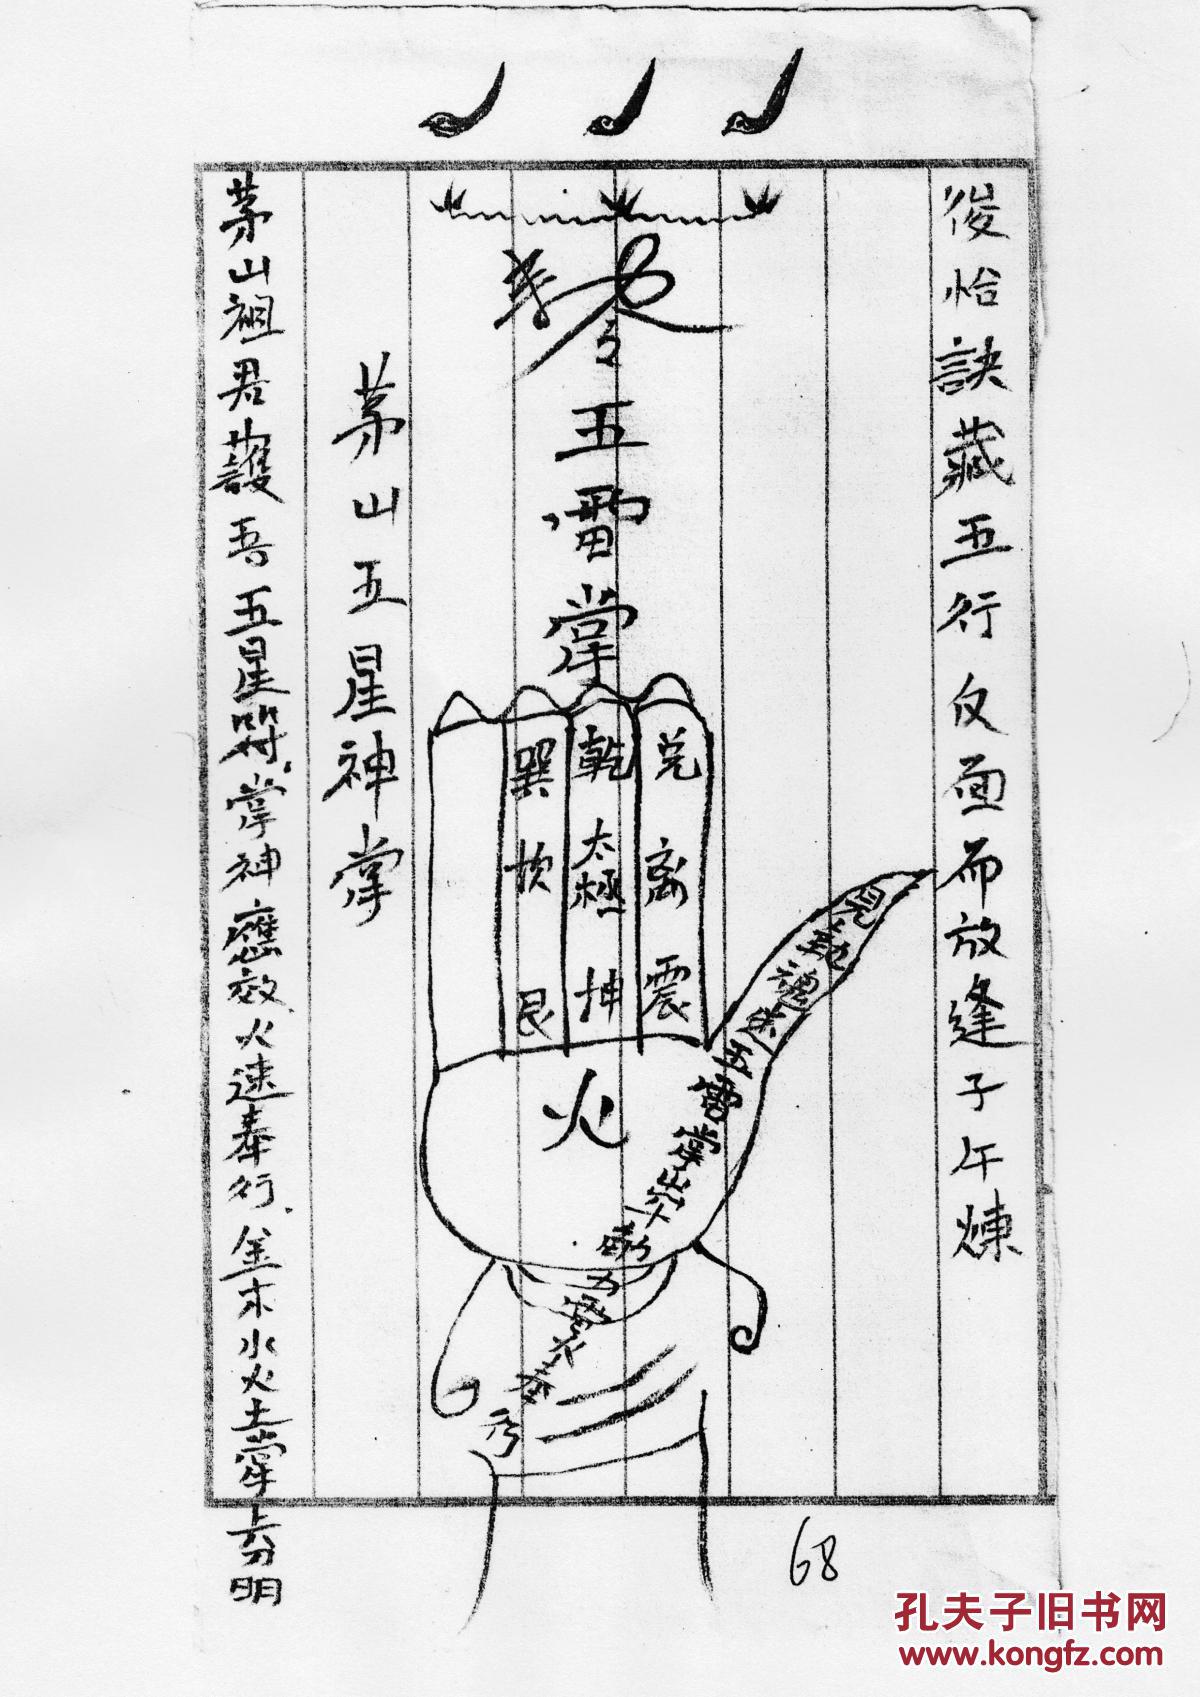 後怡訣藏五行仅面而放逢子午煉
令
五雷掌
兑離震
乾太極坤
巽坎艮
火
五雷掌
茅山五星神掌
茅山祖君護吾五星符掌神應效火速奉行金木水火土掌上分明
68
孔夫子旧书网
www.kongfz.com